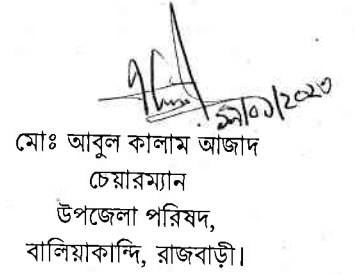 মোঃ আবুল কালাম আজাদ
চেয়ারম্যান
উপজেলা পরিষদ,
বালিয়াকান্দি, রাজবাড়ী।